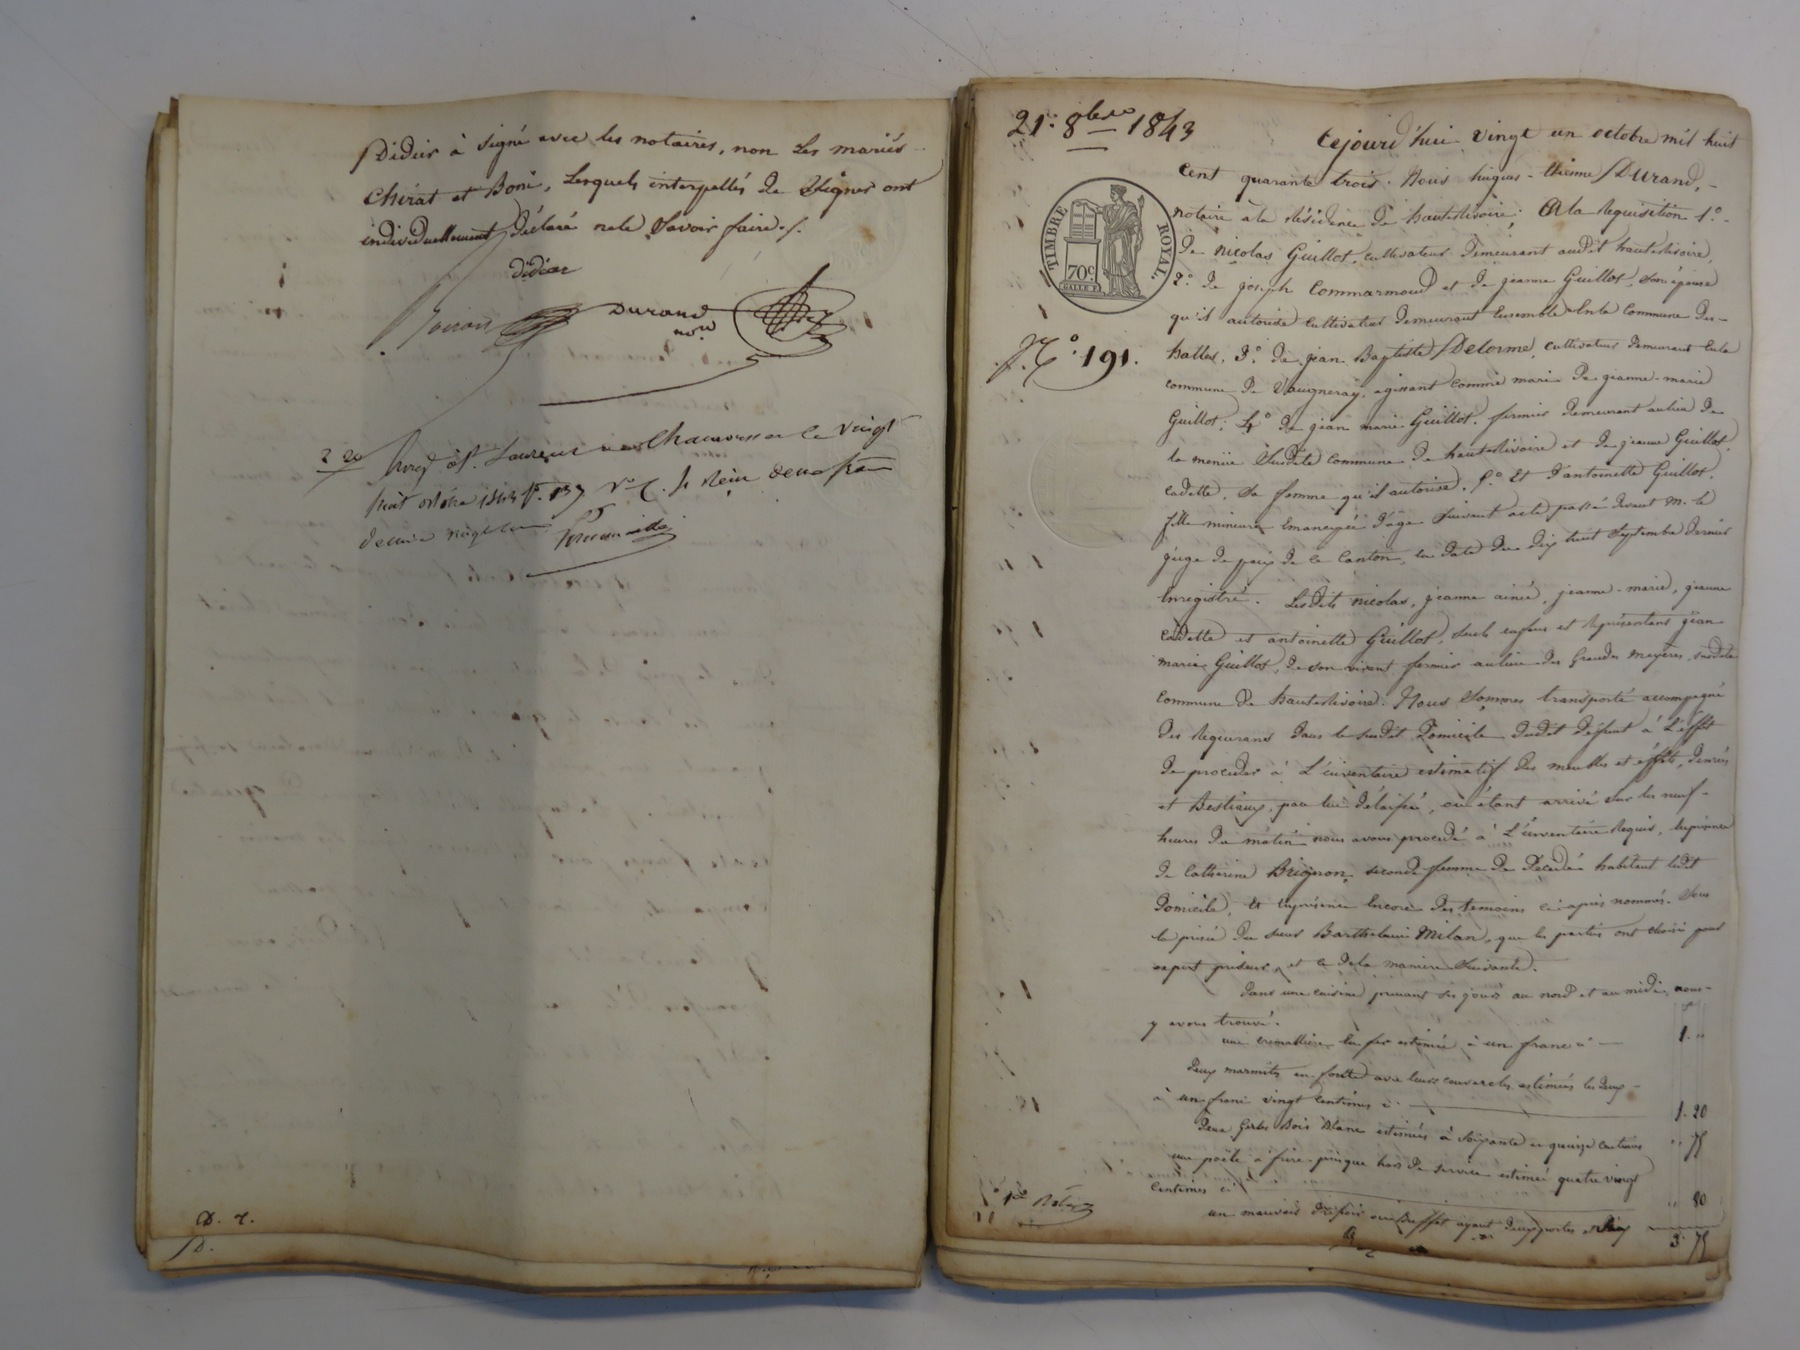 Didier à signé avec les notaires, non les mariés
Chirat et Boni, Lesquels interpellés de Signer ont
individuellement déclaré ne le Savoir faire./.
didier
Durand
nore
2 20
à St. Laurent de Chamousset le vingt
huit octobre 1843 fo. 137 Vo C. 4 Reçu deux francs
decime vingt
D. r.
D.
21. 8bre 1843
Cejourd'hui vingt un octobre mil huit
cent quarante trois. Nous hugues-étienne Durand,
notaire à la résidence de hauterivoire; A la Requisition 1.o
TIMBRE ROYAL
70c
De nicolas Guillot, cultivateur demeurant audit hauterivoire,
2.o de joseph Commarmond et de jeanne Guillot, son épouse
qu'il autorise cultivateurs demeurant Ensemble En la commune des
No. 191.
halles, 3.o de jean Baptiste Delorme, cultivateur demeurant En la
commune de Vaugneray, agissant comme mari de jeanne-marie
Guillot; 4.o de jean marie Guillot, fermier demeurant au lieu de
la menüe Susdite commune de hauterivoire et de jeanne Guillot
cadette, Sa femme qu'il autorise, 5.o Et d'antoinette Guillot,
fille mineure Emancipée d'age Suivant acte passé devant M. le
juge de paix de ce Canton, en date du dix huit Septembre dernier
Enregistré. Lesdits nicolas, jeanne ainée, jeanne-marie, jeanne
cadette et antoinette Guillot, Seuls enfans et Représentans jean
marie Guillot, de son vivant fermier au lieu des Grandes mayères, susdite
commune de hauterivoire. Nous Sommes transporté accompagné
des Requerans dans le susdit Domicile dudit Défunt à L'éffet
de proceder à L'inventaire estimatif des meubles et éffets, denrés
et Bestiaux, par lui délaissé, où étant arrivé sur les neuf
heures du matin nous avons procédé à L'inventaire Requis, En présence
de Catherine Brignon, seconde femme du Décédé habitant ledit
Domicile, Et En présence Encore des temoins ci-après nommés. Sous
la prisée du sieur Barthelemi Milan, que les parties ont choisi pour
expert priseur, et ce de la manière Suivante.
Dans une cuisine prenant ses jours au nord et au midi, nous
y avons trouvé.
une cremaillere En fer estimée à un franc ci 1. "
Deux marmites en fonte avec leurs couvercles estimées les deux
à un franc vingt centimes ci 1. 20
Deux Gerles Bois Blanc estimées à Soixante et quinze centimes " 75
une poële à frire presque hors de service estimée quatre vingt
Centimes ci " 80
un mauvais Buffet ayant deux portes
3. 75